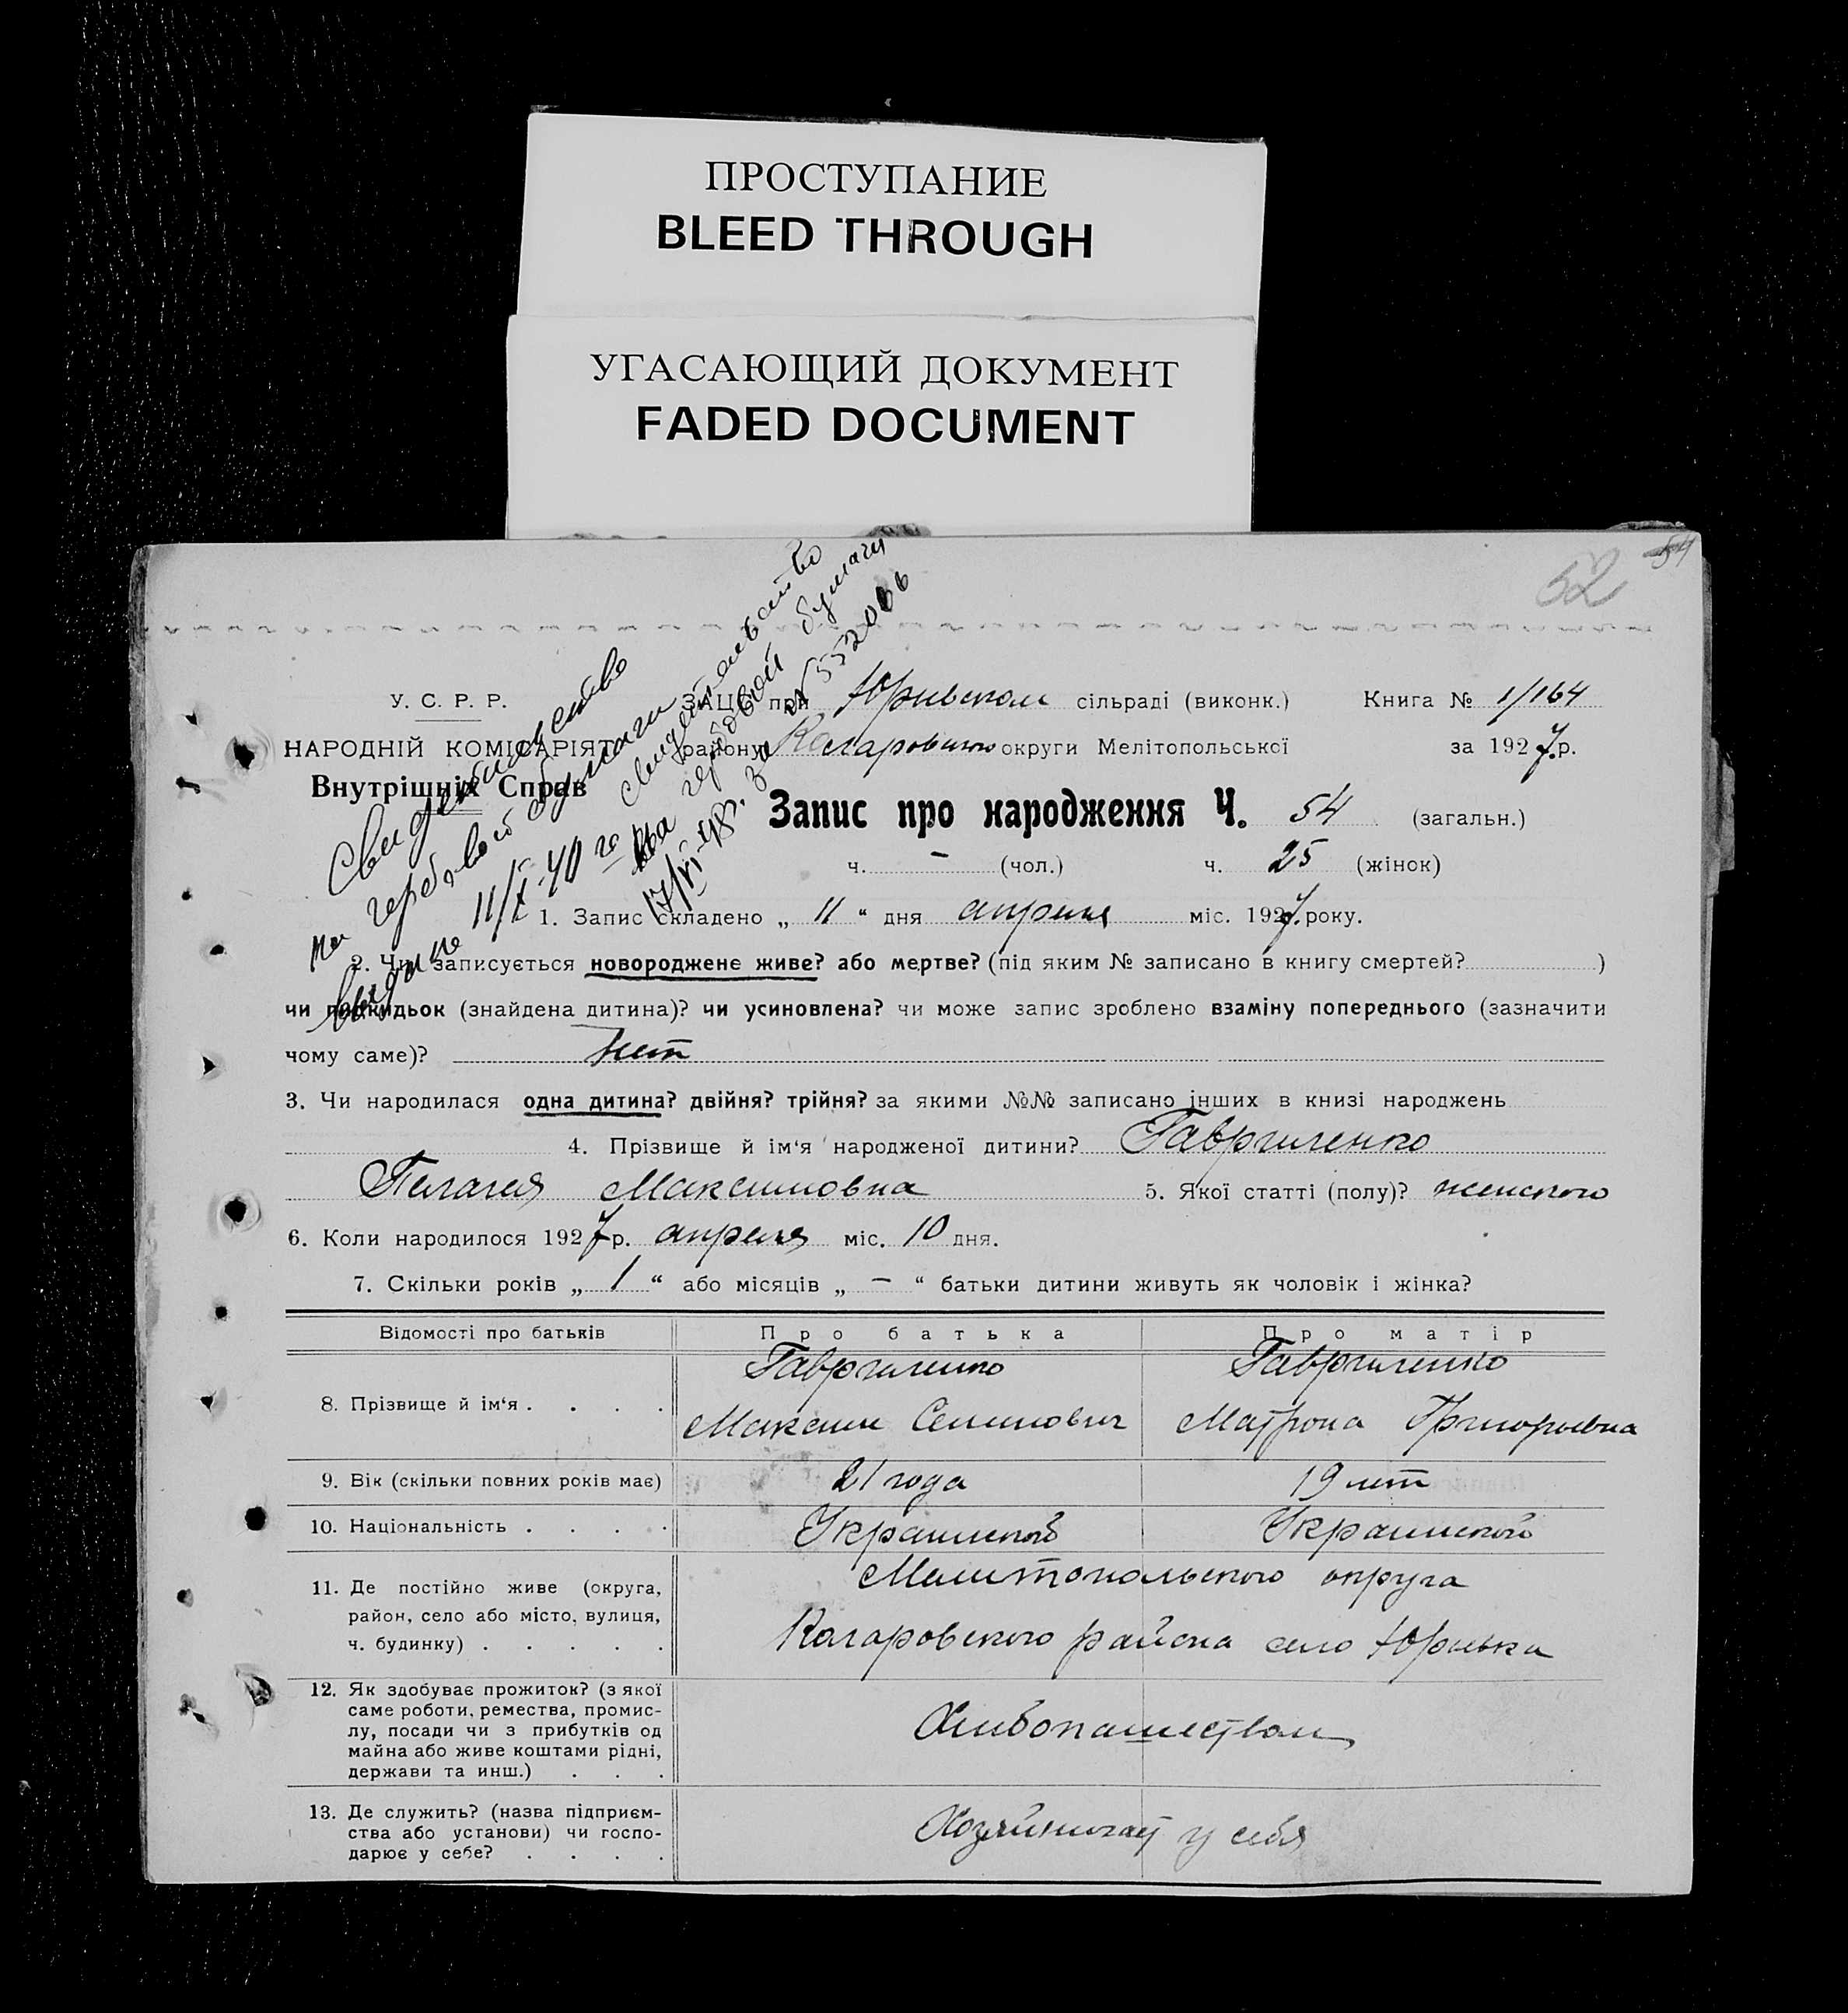 ПРОСТУПАНИЕ
BLEED THROUGH
УГАСАЮЩИЙ ДОКУМЕНТ
FADED DOCUMENT
52
54
Свидетельство
на гербовой бумаги
выдано 11/X-40 го
свидетельство
на гербовой бумаги
17/VI-48г. за № 552066
У. С. Р. Р.
НАРОДНІЙ КОМІСАРІЯТ
Внутрішніх Справ
ЗАЦС при Юрьевском сільраді (виконк.) Книга № 1/164
району Коларовского округи Мелітопольської за 1927 р.
Запис про народження Ч. 54 (загальн.)
ч. – (чол.) ч. 25 (жінок)
1. Запис складено „ 11 “ дня апреля міс. 1927 року.
2. Чи записується новороджене живе? або мертве? (під яким № записано в книгу смертей? )
чи підкидьок (знайдена дитина)? чи усиновлена? чи може запис зроблено взаміну попереднього (зазначити
чому саме)? Нет
3. Чи народилася одна дитина? двійня? трійня? за якими №№ записано інших в книзі народжень
4. Прізвище й ім‘я народженої дитини? Гавриленко
Пелагея Максимовна 5. Якої статті (полу)? женского
6. Коли народилося 1927 р. апреля міс. 10 дня.
7. Скільки років „ 1 “ або місяців „ – “ батьки дитини живуть як чоловік і жінка?
Відомості про батьків Про батька Про матір
8. Прізвище й ім‘я . . . . Гавриленко Гавриленко
Максим Семинович Матрона Григорьевна
9. Вік (скільки повних років має) 21 года 19 лет
10. Національність . . . . Украинской Украинской
11. Де постійно живе (округа, Мелитопольского округа
район, село або місто, вулиця,
ч. будинку) . . . . . Коларовского района село Юрьевка
12. Як здобуває прожиток? (з якої
саме роботи, ремества, промис-
лу, посади чи з прибутків од Хлибопашеством
майна або живе коштами рідні,
держави та инш.) . . .
13. Де служить? (назва підприєм-
ства або установи) чи госпо- Хозяйничает у себя
дарює у себе? . . . .